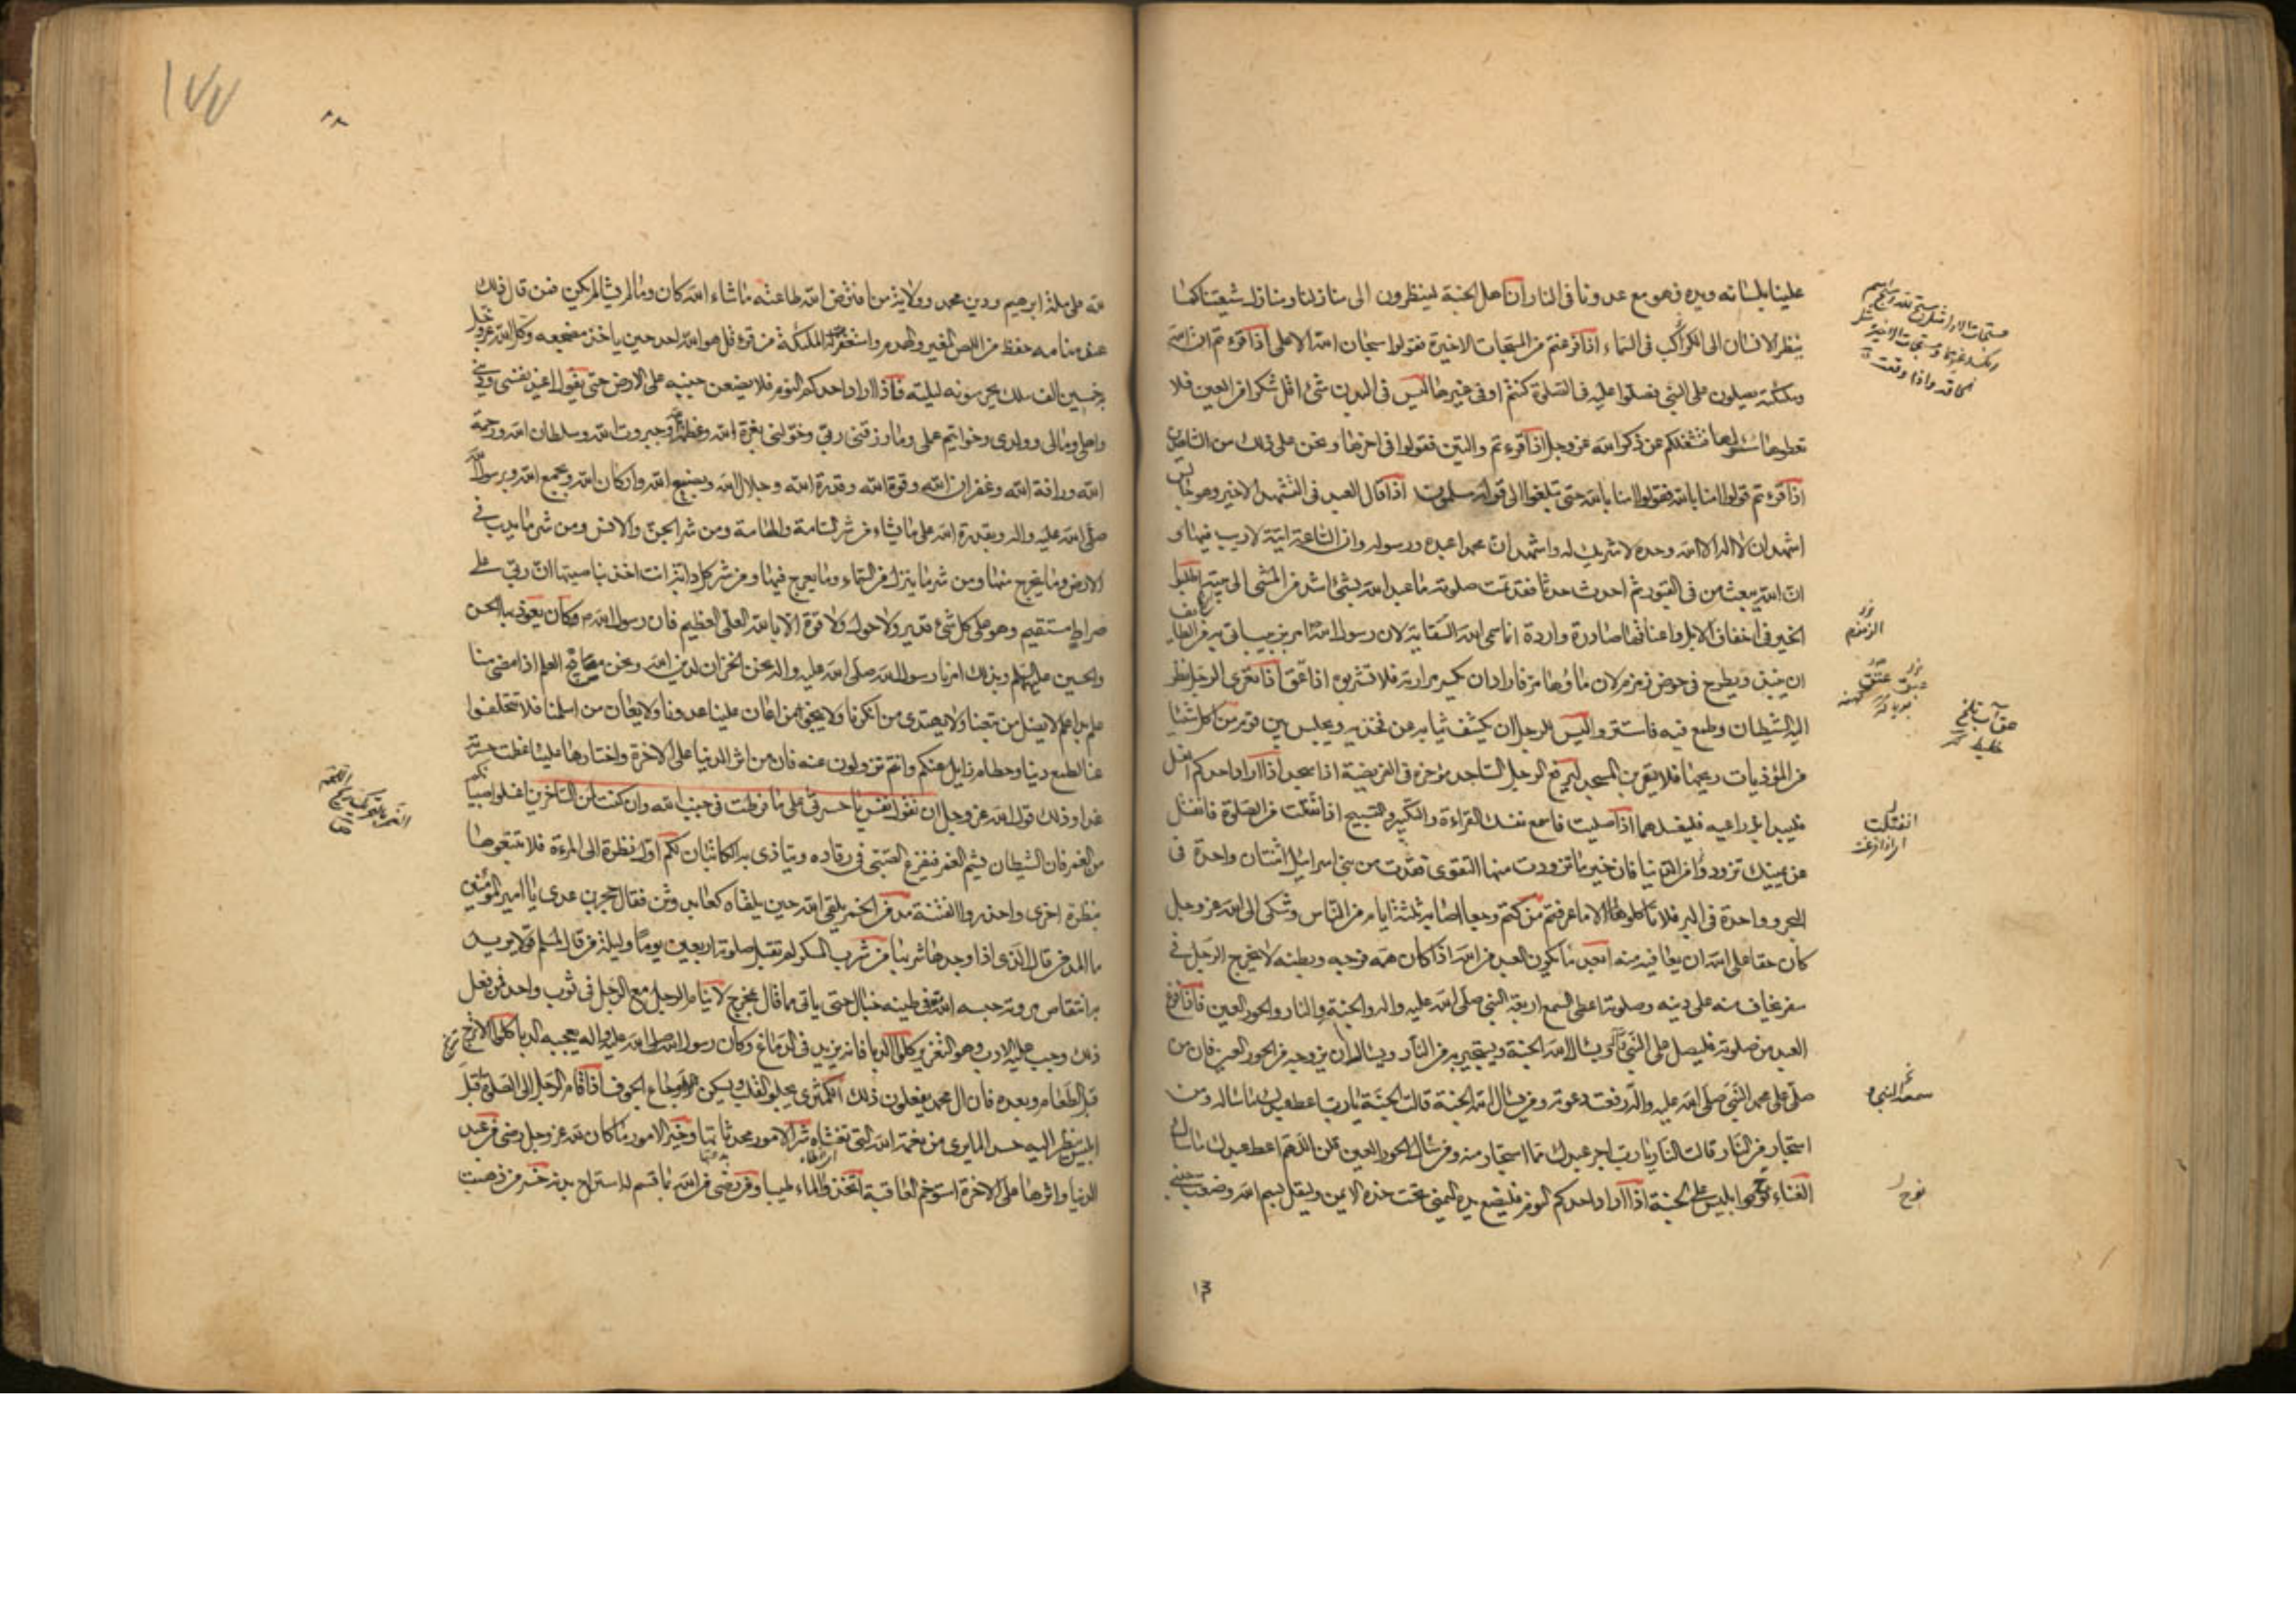 علينا بلسانه ويده فهو مع عدونا فى النار ان اهل الجنة لينظرون الى منازلنا ومنازل شيعتنا كما
ينظر الانسان الى الكواكب فى السماء اذا قرءتم من المسبحات الاخيرة فقولوا سبحان الله الاعلى اذا قرءتم ان الله
وملئكته يصلون على النبى فصلوا عليه فى الصلوة كنتم او فى غيرها ليس فى البدن شئ اقل شكرا من العين فلا
تعطوها سؤلها فتشغلكم عن ذكر الله عز وجل اذا قرءتم والتين فقولوا فى اخرها ونحن على ذلك من الشاهدين
اذا قرءتم قولوا امنا بالله فقولوا امنا بالله حتى تبلغوا الى قوله مسلمون اذا قال العبد فى التشهد الاخير وهو جالس
اشهد ان لا اله الا الله وحده لا شريك له واشهد ان محمدا عبده ورسوله وان الساعة اتية لا ريب فيها و
ان الله يبعث من فى القبور ثم احدث حدثا فقد تمت صلوته ما عبد الله بشئ اشد من المشى الى بيته اطلبوا
الخير فى اخفاف الابل واعناقها صادرة وواردة انما سمى الله السقاية لان رسول الله امر بزبيب اتى به من الطايف
ان ينبذ ويطرح فى حوض زمزم لان ماؤها مر فاراد ان يكسر مرارته فلا تشربوه اذا عتق اذا تعرى الرجل نظر
اليه الشيطان وطمع فيه فاستتروا ليس للرجل ان يكشف ثيابه عن فخذيه ويجلس بين قوم من اكل شيئا
من المؤذيات ريحها فلا يقربن المسجد ليرفع الرجل الساجد مؤخره فى الفريضة اذا سجد اذا اراد احدكم الغسل
فليبدا بذراعيه فليغسلهما اذا صليت فاسمع نفسك القراءة والتكبير والتسبيح اذا انفتلت من الصلوة فانفتل
عن يمينك تزودوا من الدنيا فان خير ما تزودت منها التقوى فقدت من بنى اسرائيل امتان واحدة فى
البحر وواحدة فى البر فلا تاكلوا الا ما عرفتم من كتم وجعا اصابه ثلثة ايام من الناس وشكى الى الله عز وجل
كان حقا على الله ان يعافيه منه ابعد ما يكون العبد من الله اذا كان همه فرجه وبطنه لا يخرج الرجل فى
سفر يخاف منه على دينه وصلوته اعطى السمع اربعة النبى صلى الله عليه واله والجنة والنار والحور العين فاذا فرغ
العبد من صلوته فليصل على النبى ويسال الله الجنة ويستجير به من النار ويساله ان يزوجه من الحور العين فان من
صلى على محمد النبى صلى الله عليه واله رفعت دعوته ومن سال الله الجنة قالت الجنة يارب اعط عبدك ما سال ومن
استجار من النار قالت النار يارب اجر عبدك مما استجار منه ومن سال الحور العين قلن اللهم اعط عبدك ما سال
الغناء نوح ابليس على الجنة اذا اراد احدكم النوم فليضع يده اليمنى تحت خده الايمن وليقل بسم الله وضعت جنبى
انفتلت
نوح
١٣
١٧٧
لله على ملة ابراهيم ودين محمد وولاية من افترض الله طاعته ما شاء الله كان وما لم يشا لم يكن فمن قال ذلك
عند منامه حفظ من اللص المغير والهدم واستغفرت له الملئكة من قرء قل هو الله احد حين ياخذ مضجعه وكل الله عز وجل
به خمسين الف ملك يحرسونه ليلته فاذا اراد احدكم النوم فلا يضعن جنبه على الارض حتى يقول اعيذ نفسى ودينى
واهلى ومالى وولدى وخواتيم عملى وما رزقنى ربى وخولنى بعزة الله وعظمة الله وجبروت الله وسلطان الله ورحمة
الله ورافة الله وغفران الله وقوة الله وقدرة الله وجلال الله وبصنع الله واركان الله وبجمع الله وبرسول الله
صلى الله عليه واله وبقدرة الله على ما يشاء من شر السامة والهامة ومن شر الجن والانس ومن شر ما يدب فى
الارض وما يخرج منها ومن شر ما ينزل من السماء وما يعرج فيها ومن شر كل دابة انت اخذ بناصيتها ان ربى على
صراط مستقيم وهو على كل شئ قدير ولا حول ولا قوة الا بالله العلى العظيم فان رسول الله ص وكان يعوذ بها الحسن
والحسين عليهما السلم وبذلك امرنا رسول الله صلى الله عليه واله نحن الخزان لدين الله ونحن مصابيح العلم اذا مضى منا
علم بدا علم لا يضل من تبعنا ولا يهتدى من انكرنا ولا ينجو من اعان علينا عدونا ولا يعان من اسلمنا فلا تتخلفوا
عنا لطمع دنيا وحطام زايل عنكم وانتم تزولون عنه فان من اثر الدنيا على الاخرة واختارها علينا عظمت حسرته
غدا وذلك قول الله عز وجل ان تقول نفس يا حسرتى على ما فرطت فى جنب الله وان كنت لمن الساخرين اغسلوا صبيانكم
من الغمر فان الشيطان يشم الغمر فيفزع الصبى فى رقاده ويتاذى به الكاتبان لكم اول نظرة الى المرءة فلا تتبعوها
بنظرة اخرى واحذروا الفتنة مدمن الخمر يلقى الله حين يلقاه كعابد وثن فقال حجر بن عدى يا امير المؤمنين
ما المدمن قال الذى اذا وجدها شربها من شرب المسكر لم تقبل صلوته اربعين يوما وليلة من قال لمسلم قولا يريد
به انتقاص مروته حبسه الله فى طينة خبال حتى ياتى مما قال بمخرج لا ينام الرجل مع الرجل فى ثوب واحد فمن فعل
ذلك وجب عليه الادب وهو التعزير كلوا الدبا فانه يزيد فى الدماغ وكان رسول الله صلى الله عليه واله يعجبه الدبا كلوا الاترج
قبل الطعام وبعده فان ال محمد يفعلون ذلك الكمثرى يجلو القلب ويسكن اوجاع الجوف اذا قام الرجل الى الصلوة اقبل
ابليس ينظر اليه حسدا لما يرى من نعمة الله التى تغشاه شر الامور محدثاتها وخير الامور ما كان لله عز وجل رضى من عبد
الدنيا واثرها على الاخرة استوخم العاقبة اتخذوا الماء طيبا ومن رضى من الله بما قسم له استراح بدنه خسر من ذهبت